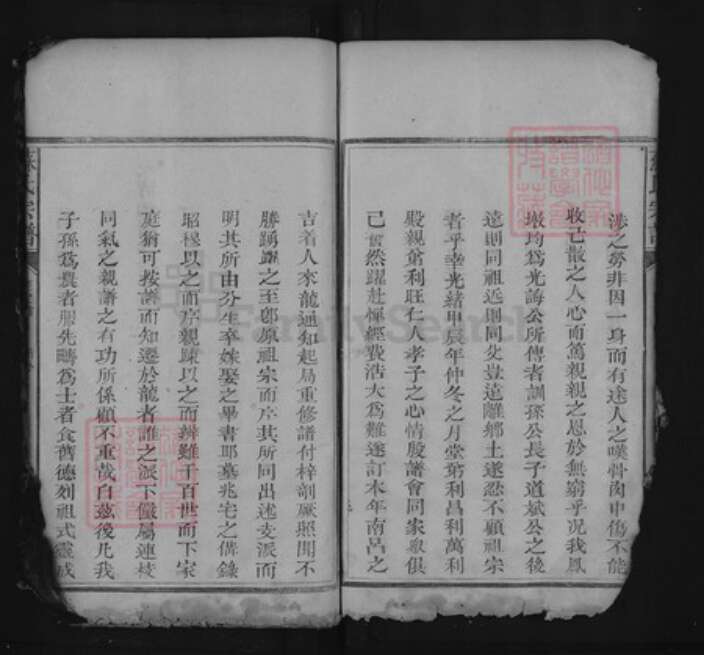 涉之勞非因一身而有途人之嘆骨肉中傷不能
收已散之人心而篤親親之恩於無窮乎况我鳳
墩均爲光誨公所傳者訓孫公長子道斌公之後
遠則同祖近則同父豈遠離鄉土遂忍不顧祖宗
者乎幸光緒甲辰年仲冬之月堂弟利昌利萬利
殷親弟利旺仁人孝子之心情殷譜會同家衆俱
已奮然躍赴惟經費浩大爲難遂訂本年南呂之
吉着人來龍通知起局重修譜付梓剞厥照聞不
勝踴躍之至郎原祖宗而序其所同出述支派而
明其所由分生卒嫁娶之畢書耶墓兆宅之備錄
昭穆以之而序親疎以之而辨雖千百世而下家
庭猶可按譜而知遷於龍者誰之派下儼屬連枝
同氣之親譜之有功所係顧不重哉自茲後凡我
子孫爲農者服先疇爲士者食舊德列祖式靈成
氏宗譜
FamilySearch